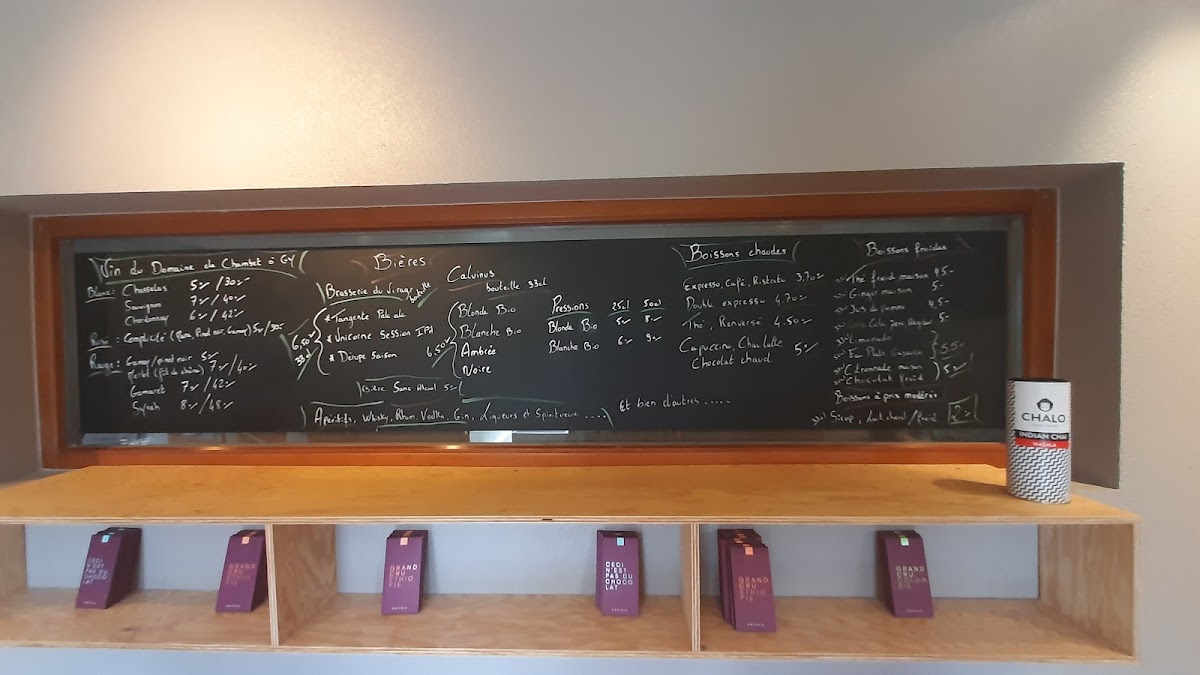 Vin du Domaine de Chambet à GY
Blanc: Chasselas 5.- / 30.-
Sauvignon 7.- / 40.-
Chardonnay 6.- / 42.-
Rosé: Complicité (Gamay) 5.- / 30.-
Rouge: Gamay/pinot noir 5.-
Merlot (fût de chêne) 7.- / 40.-
Gamaret 7.- / 42.-
Syrah 8.- / 48.-
Bières
Brasserie du Virage bouteille
* Tangente Pale ale
* Unicorne Session IPA
* Dérupe Saison
6,50.- 33cl
Calvinus
bouteille 33cl
Blonde Bio
Blanche Bio
Ambrée
Noire
6,50.-
Pressions 25cl 50cl
Blonde Bio 5.- 8.-
Blanche Bio 6.- 9.-
Bière Sans Alcool 5.-
Apéritifs, Whisky, Rhum, Vodka, Gin, Liqueurs et Spiritueux ....
Et bien d'autres .....
Boissons chaudes
Expresso, Café, Ristretto 3.70.-
Double expresso 4.70.-
Thé, Renversé 4.50.-
Capuccino, Chai Latte
Chocolat chaud 5.-
Boissons froides
Thé froid maison 4,5.-
Ginger maison 5.-
Jus de pomme 4,5.-
Limonade
Eau Plate Gazeuse
5,5.-
Citronnade maison
Chocolat Froid
5.-
Boissons à prix modérés
Sirop, Lait chaud/froid 2.-
CHALO
INDIAN CHAI
MASALA
CECI
N'EST
PAS DU
CHOCO
LAT
GRAND
CRU
ETHIO
PIE
GRAND
CRU
ETHIO
PIE
CECI
N'EST
PAS DU
CHOCO
LAT
GRAND
CRU
ETHIO
PIE
GRAND
CRU
COLOM
BIE